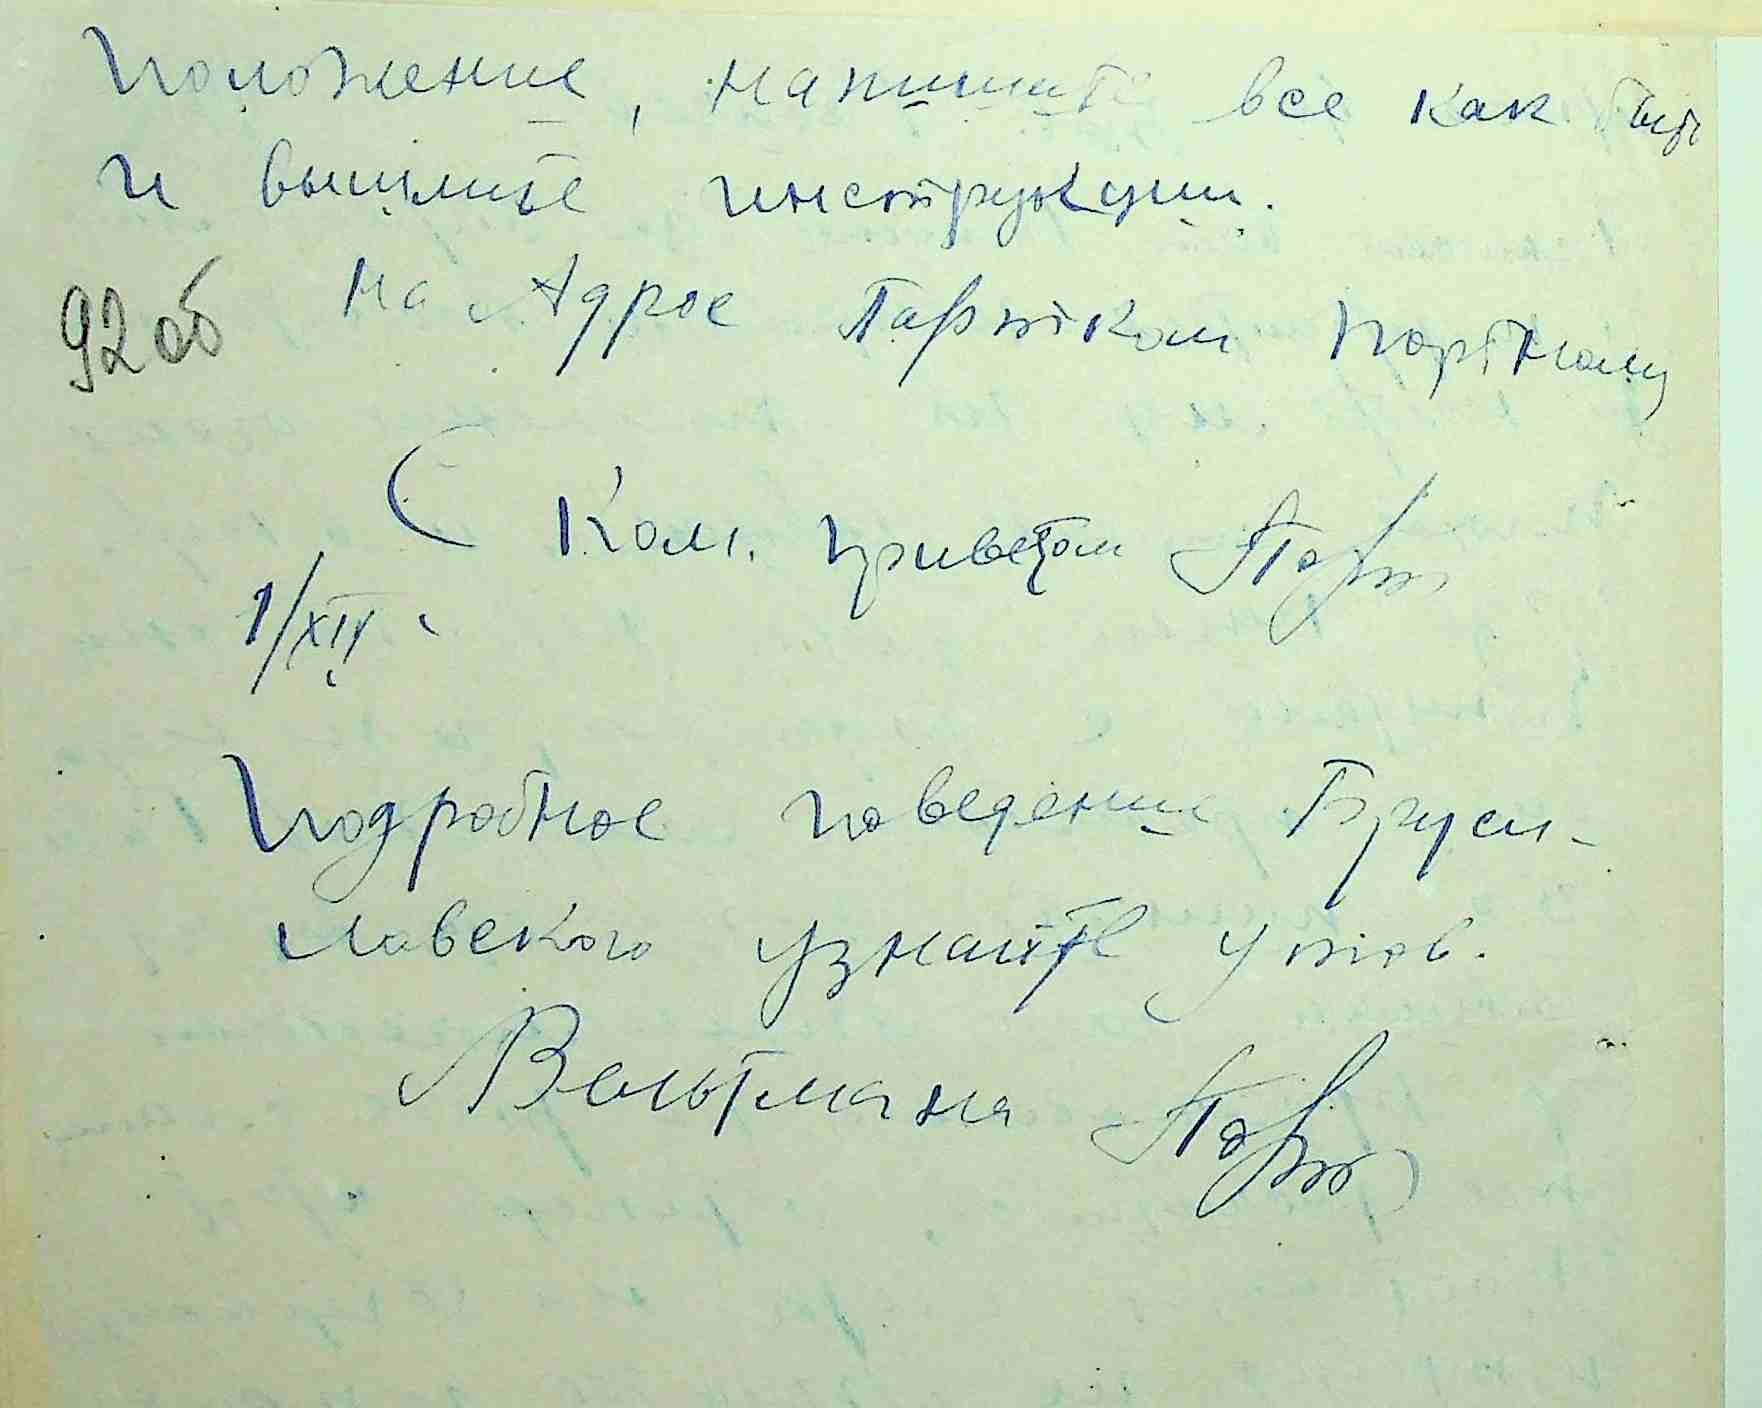 положение, напишите все как быть
и вышлите инструкции.
92 об
на Адрес Партком Портному
С Ком. приветом Порт
1/XII
Подробное поведение Бруси-
ловского узнайте у тов.
Вольтмана Порт